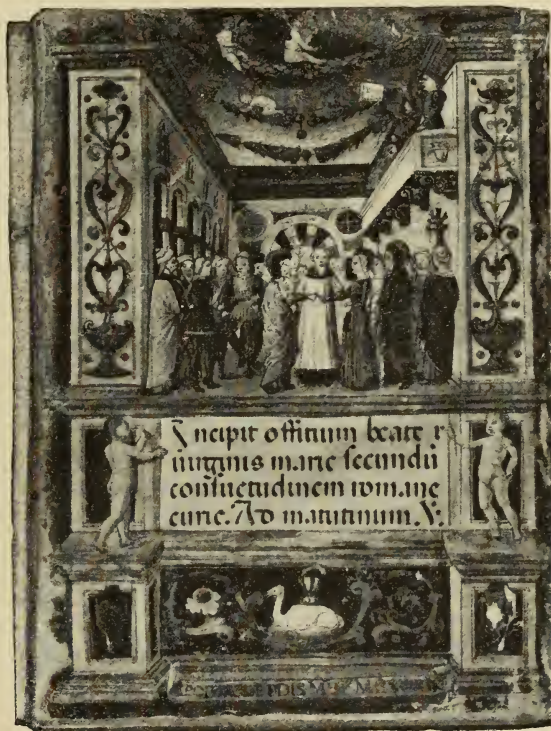 Incipit offitium beate
uirginis marie secundū
consuetudinem romane
curie. Ad matutinum. V.